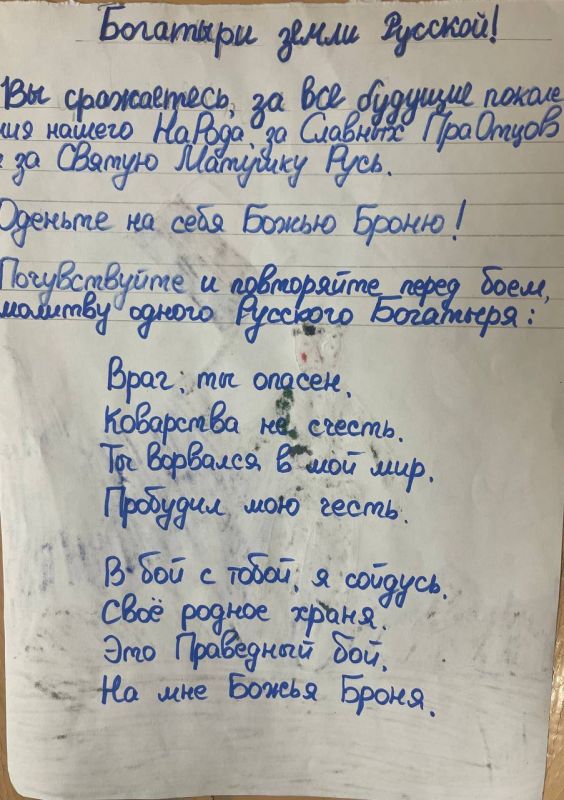 Богатыри земли Русской!
Вы сражаетесь, за все будущие поколе
ния нашего НаРода, за Славных ПраОтцов
и за Святую Матушку Русь.
Оденьте на себя Божью Броню!
Почувствуйте и повторяйте перед боем,
молитву одного Русского Богатыря:
Враг, ты опасен.
Коварства не счесть.
Ты ворвался в мой мир.
Пробудил мою честь.
В бой с тобой, я сойдусь.
Своё родное храня.
Это Праведный бой.
На мне Божья Броня.